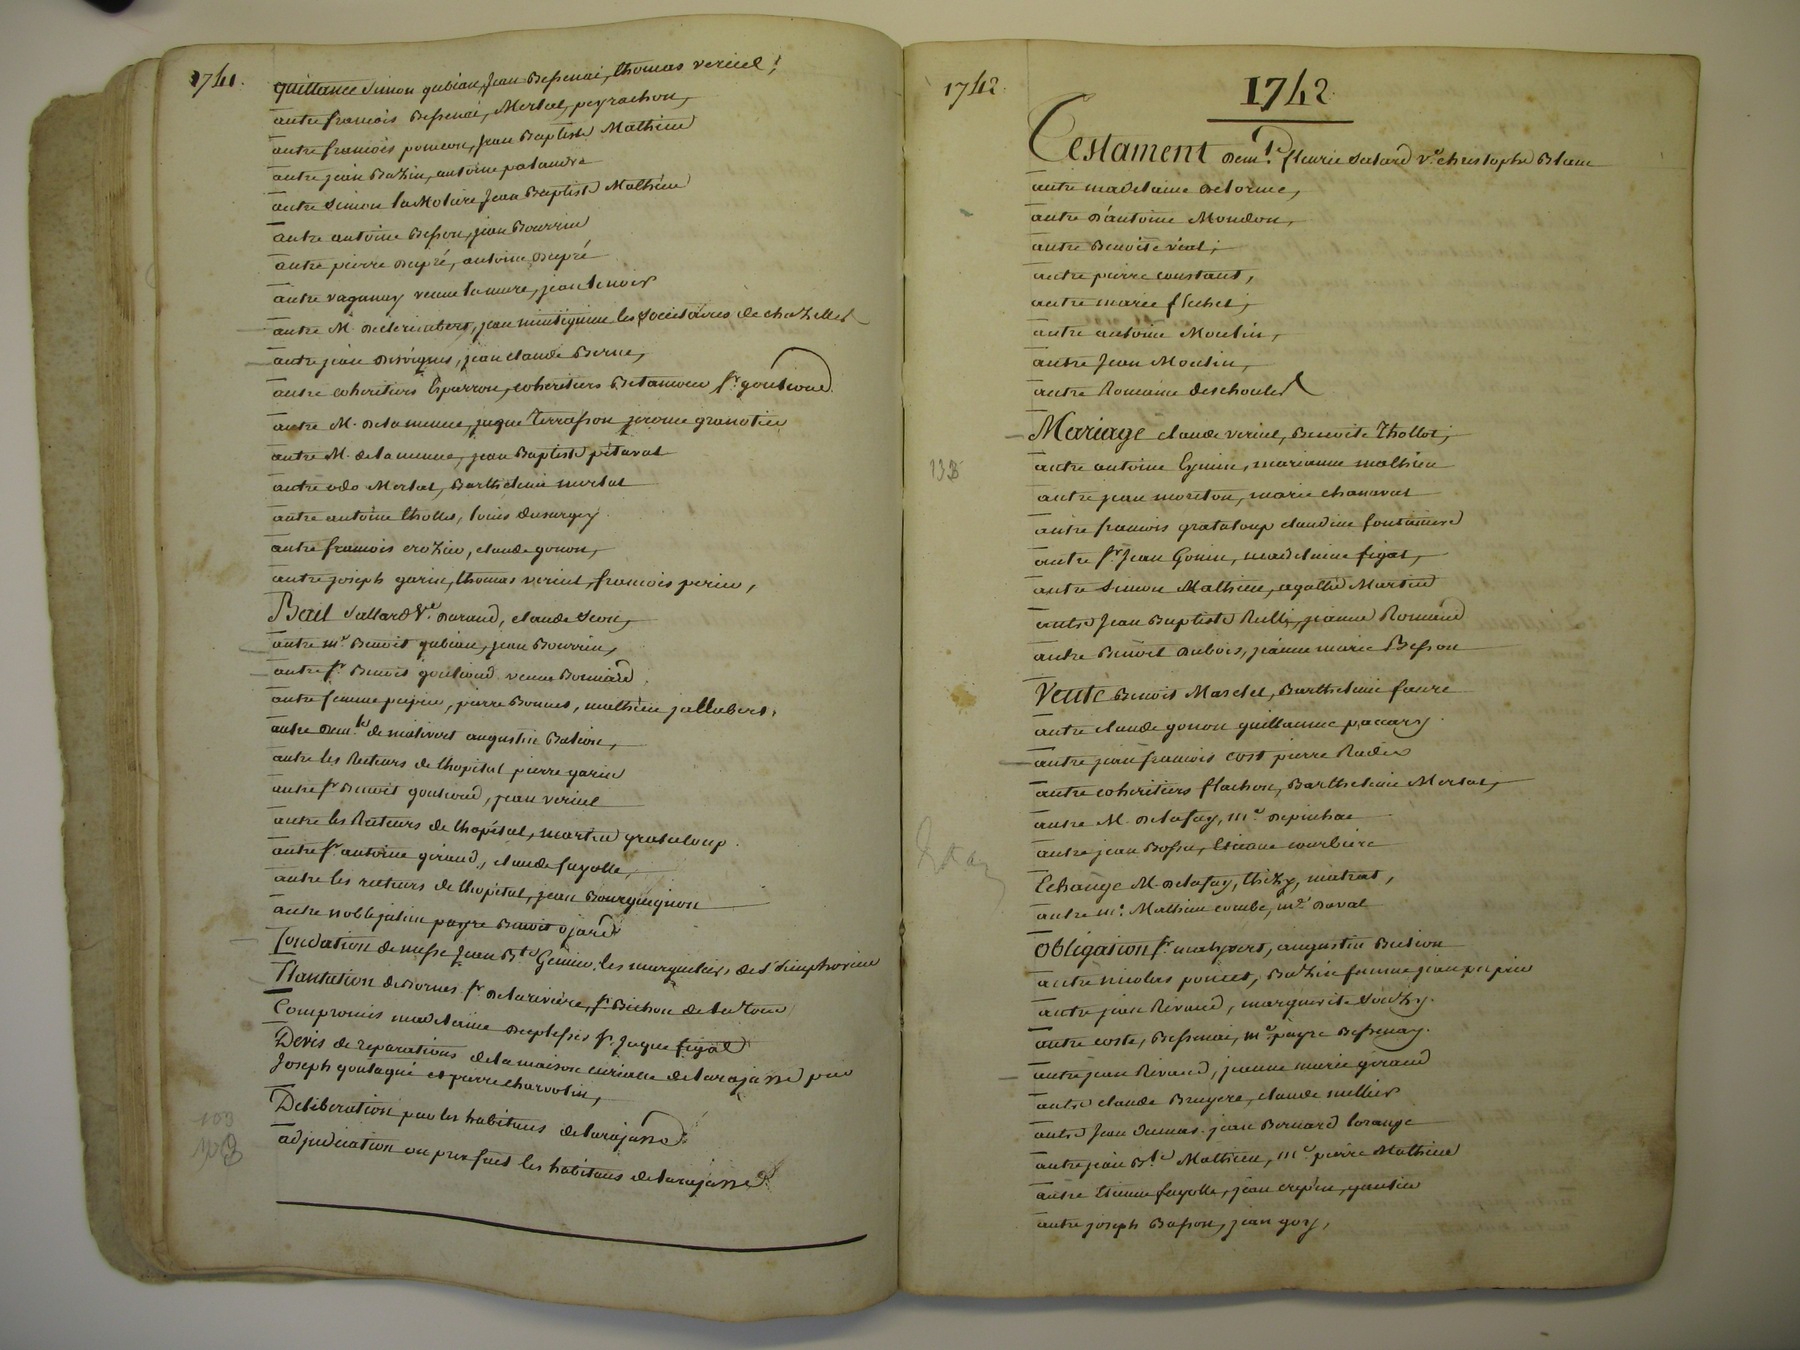 1741.
quittance simon gubian, Jean Bessenai, thomas vericel;
autre francois Bessenai, Merlat, peyrachon,
autre francois poncon, Jean Baptiste Mathieu
autre jean Bazin, antoine palandre
autre simon la Moliere Jean Baptiste Mathieu
autre antoine Besson, jean Bourrin
autre pierre dupré, antoine dupré
autre vaganay veuve lamure, jean lenoir
autre M. de clerimbert, jean les societaires de chazelles
autre jean desvignes, jean claude Berne,
autre coheritiers Esparron, coheritiers Bretanoou sr. goutioud
autre M. de lamenue, jaque terrasson jerome granotier
autre M. de lamenue, jean Baptiste pétavat
autre odo Merlat, Barthelemi merlat
autre antoine thollet, louis dusurgey
autre francois crozier, claude gonon,
autre joseph garin, thomas vericel, francois perin,
Bail sallard Ve. Durand, claude
autre me Benoit gubian, jean Bourrin,
autre sr. Benoit goutioud veuve Bonnard
autre femme pupier, pierre Bonnet, mathieu jallabert,
autre demlle de malivert augustin Bation,
autre les Recteurs de l'hopital pierre garin
autre sr Benoit goutioud, jean vericel
autre les Recteurs de lhopital, martin grataloup.
autre sr. antoine giraud, claude fayolle,
autre les recteurs de lhopital, jean Bourguignon
autre noble julien payre Benoit ojard
Fondation de messe Jean Bte Grimier, les marguiliers de St simphorien
Plantation de Bornes sr. de la riviere, sr Bichon de la tour
Compromis madelaine duplessis sr. Jaque figal
Devis de reparations de la maison curiale de larajasse par
Joseph goutagni et pierre charvolin,
Deliberation par les habitans de larajasse
adjudication au prix fait les habitans de larajasse
103
1742.
1742
Testament demlle fleurie salard ve christophe Blanc
autre madelaine delorme,
autre d'antoine Moudon,
autre Benoite véal,
autre pierre constant,
autre marie flechet,
autre antoine Moulin,
autre Jean Moulin,
autre Romaine deschoulet
Mariage claude vericel, Benoite Thollot,
133
autre antoine Eymin, marianne mathieu
autre jean moreton, marie chanavat
autre francois grataloup claudine fontanière
autre sr. Jean Gonin, madelaine figat,
autre Simon Mathieu, agathe Martin
autre Jean Baptiste Rulli, jeanne Romain
autre Benoit dubois, jeanne marie Besson
Vente Benoit Marclet, Barthelemi faure
autre claude gonon guillaume paccary
autre jean francois cost pierre Radix
autre coheritiers flachon, Barthelemi Merlat,
autre M. de lafay, me depinhac
autre jean Bossu, Etienne courbiere
Echange M. de lafay, thizy, matrat,
autre me. Mathieu combe, me Duval
Obligation sr. malyvert, augustin Bution
autre nicolas poncet, Bazin femme jean pupier
autre jean Rivaud, marguerite souzy.
autre coste, Bessenai, me payre Bessenay.
autre jean Rivaud, jeanne marie giraud
autre claude Bruyere, claude mellier
autre Jean dumas, jean Bernard lorange
autre jean Bte Mathieu, me pierre Mathieu
autre Etienne fayolle, jean crepin, gautier
autre joseph Basson, jean goy,